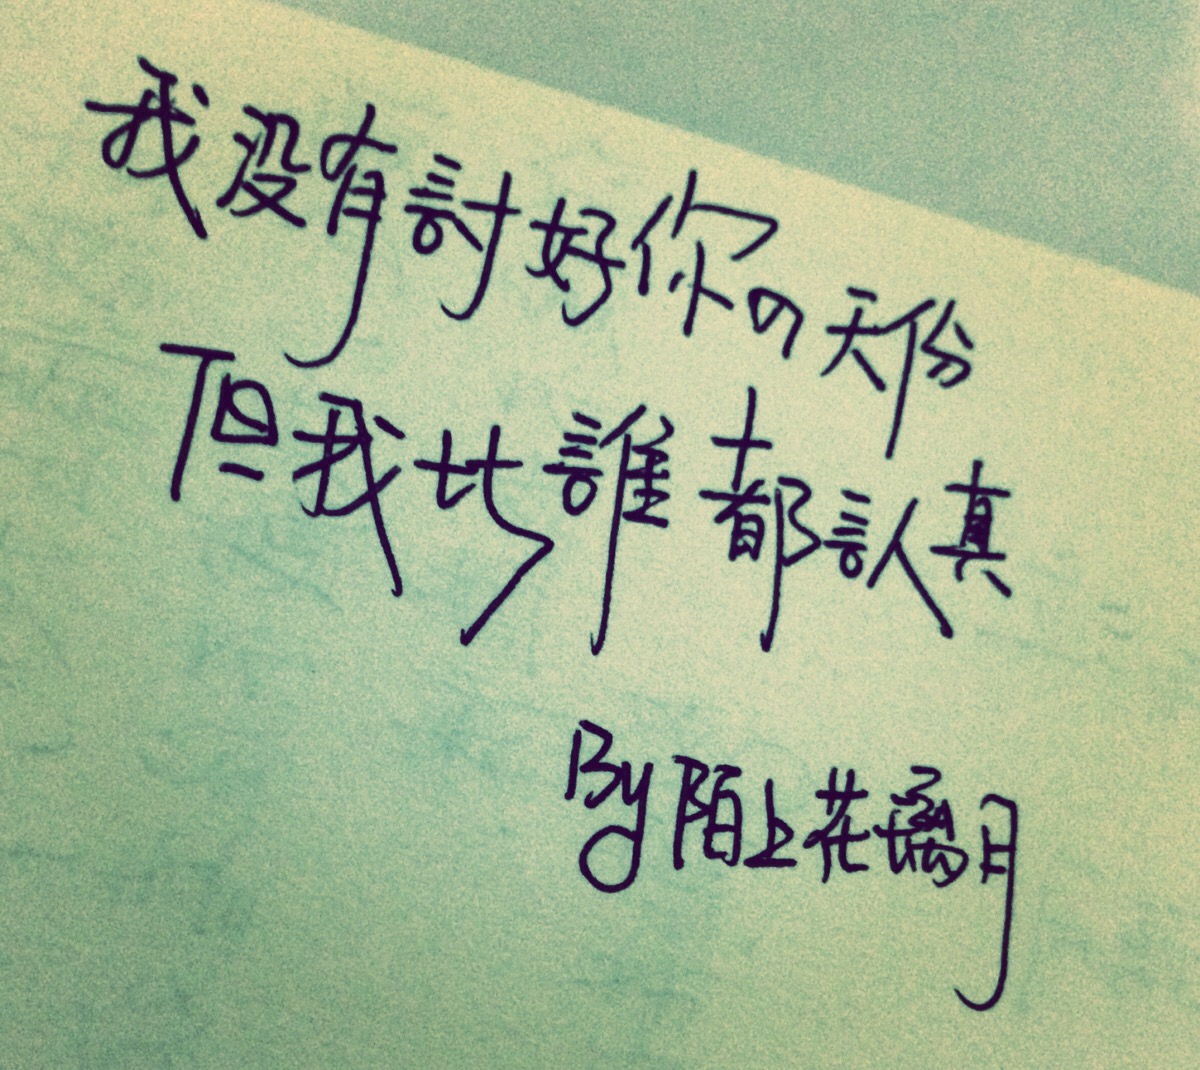 我没有討好你の天份
但我比誰都認真
By 陌上花璃月